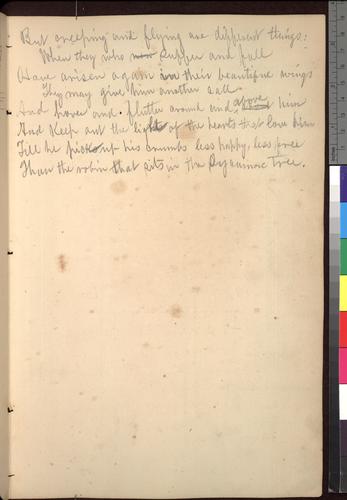 But creeping and flying are different things:
When they who now suffer and fall
Have arisen again in their beautiful wings
They may give him another call
And hover and flutter around and above him
And keep out the light of the hearts that love him
Till he picks up his crumbs less happy, less free
Than the robin that sits in the Sycamore Tree.